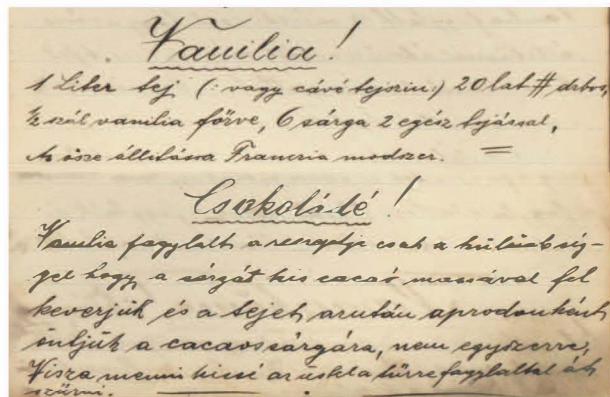 Vanilia!
1 Liter tej (: vagy cávé tejszin:) 20 lat # drbos,
½ szál vanilia főrve, 6 sárga 2 egész tojással,
Az össe állitássa Francria modszer. =
Csokoládé!
Vanilia fagylalt a recegtje csak a külömbség-
gel hogy a sárgát kis cacaó massával fel
keverjük és a tejet arután aprodonként
öntjük a cacaos sárgára, nem egyszerre,
Visza menni kissé az üstel a tűzre fagylaltal át
szürni.